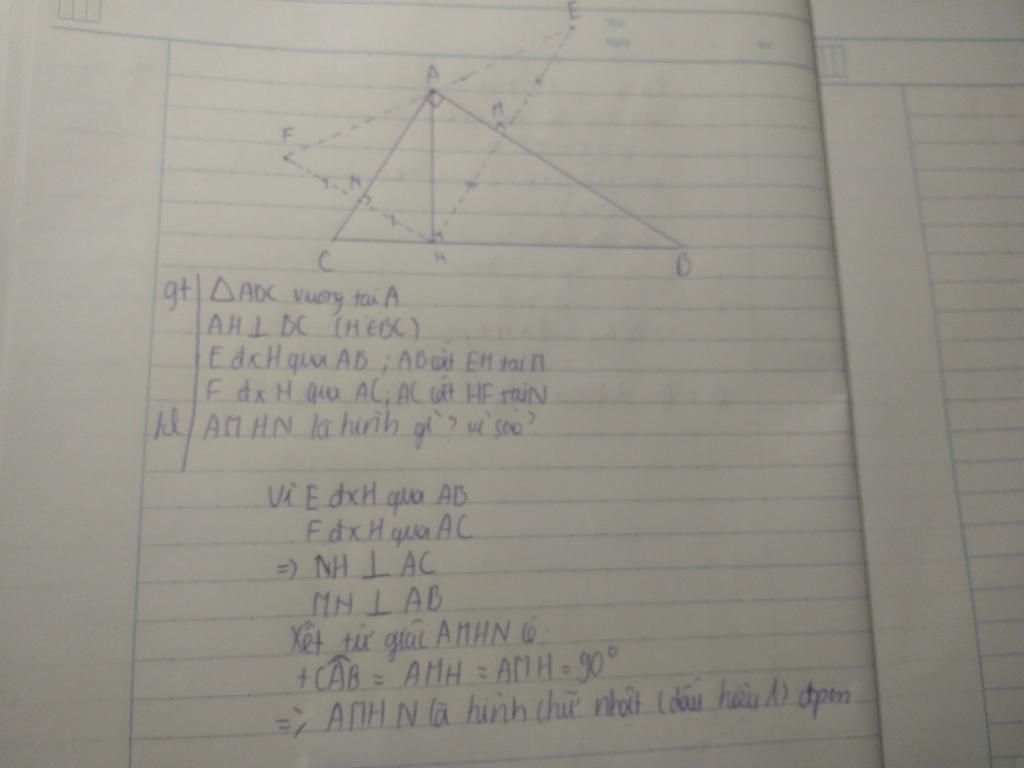 E
A
M
F
N
C
H
B
gt △ABC vuông tại A
AH ⊥ BC (H∈BC)
E đx H qua AB ; AB cắt EH tại M
F đx H qua AC ; AC cắt HF tại N
kl AMHN là hình gì? vì sao?
Vì E đx H qua AB
F đx H qua AC
=> NH ⊥ AC
MH ⊥ AB
Xét tứ giác AMHN có
+ CÂB = AMH = AMH = 90°
=> AMHN là hình chữ nhật (dấu hiệu 1) đpcm